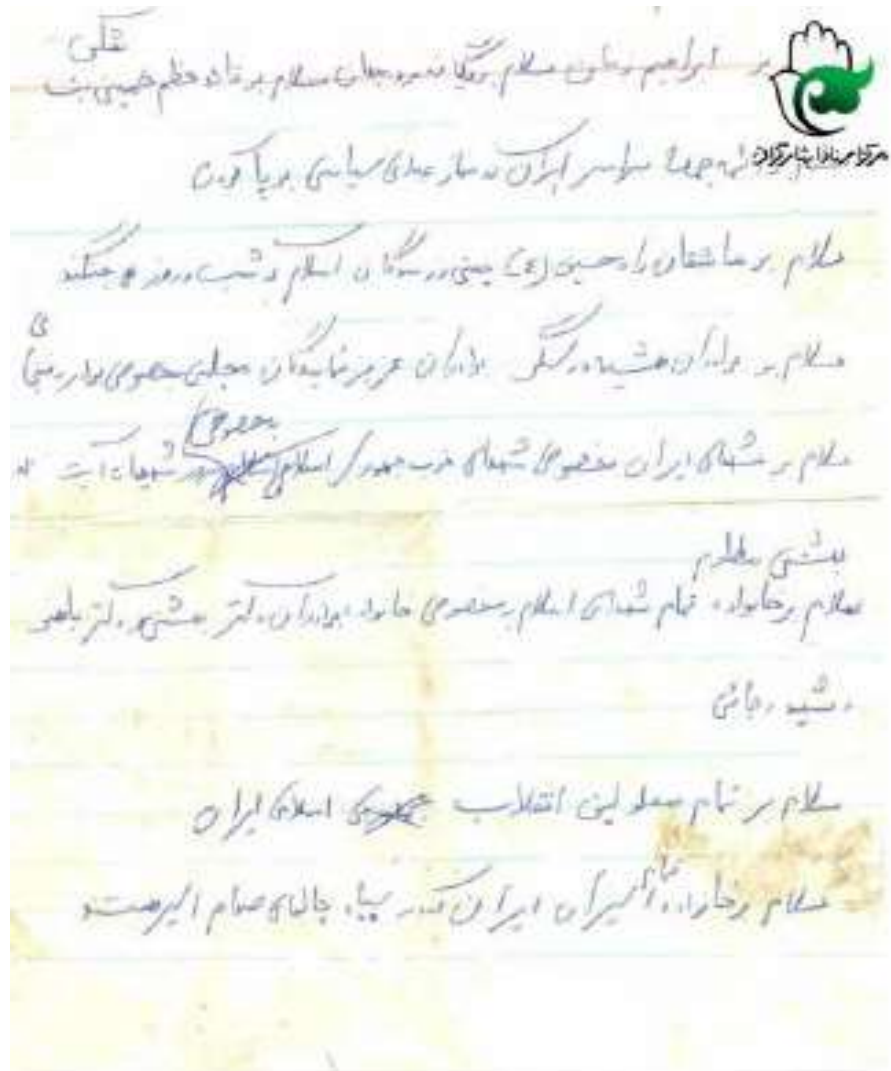 ابراهیم زمان سلام بر یگانه مرد جهان سلام بر قائد عظیم خمینی بت شکن
جمعه سراسر ایران نماز عبادی سیاسی بر پا کردن
سلام بر عاشقان راه حسین (ع) یعنی رزمندگان اسلام که شب و روز می جنگند
سلام بر برادران همیشه در سنگر برادران عزیز نمایندگان مجلس بخصوص برادر
سلام بر شهدای ایران مخصوصا شهدای حزب جمهوری اسلامی بخصوص شهید آیت
بهشتی مظلوم
سلام بر خانواده تمام شهدای اسلام بخصوص خانواده برادران دکتر بهشتی و دکتر باهنر
و شهید رجائی
سلام بر تمام معلولین انقلاب اسلامی ایران
سلام بر خانواده تمام اسیران ایران که در سیاه چالهای صدام اسیر هستند